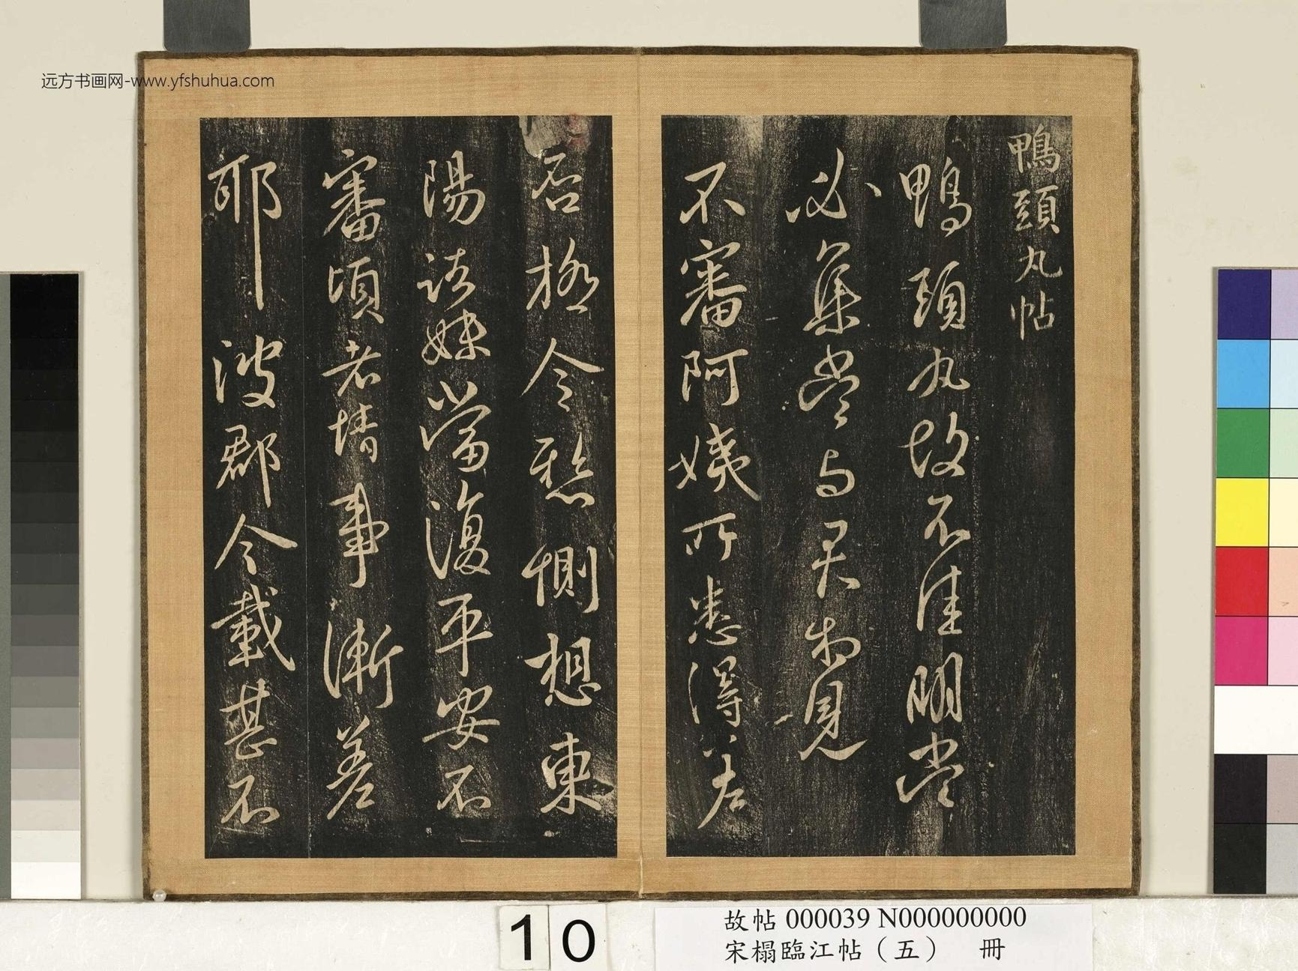 远方书画网-www.yfshuhua.com
鴨頭丸帖
鴨頭丸故不佳明當
必集當与君相見
不審阿姨所患得差
否極令懸惻想東
陽諸妹當復平安不
審頃者情事漸差
耶彼郡今載甚不
10
故帖 000039 N000000000
宋榻臨江帖（五） 冊